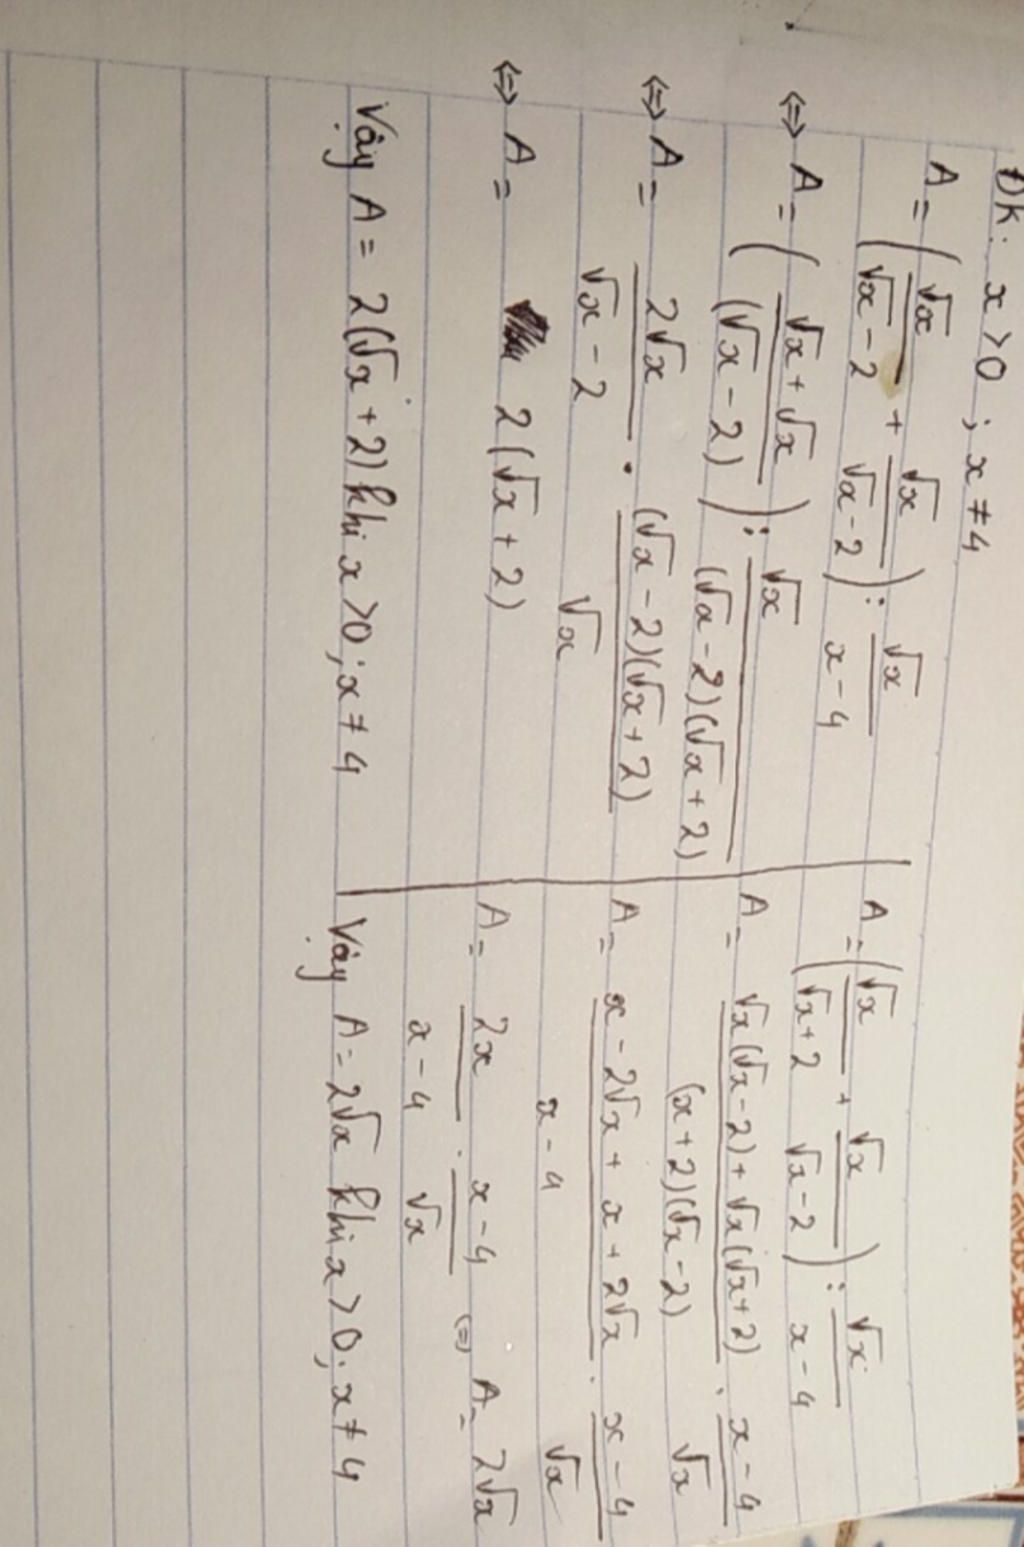 Đk: x > 0 ; x ≠ 4
A = (√x/(√x - 2) + √x/(√x - 2)) : √x/(x - 4)
⇔ A = ((√x + √x)/(√x - 2)) : √x/((√x - 2)(√x + 2))
⇔ A = 2√x/(√x - 2) . (√x - 2)(√x + 2)/√x
⇔ A = 2(√x + 2)
Vậy A = 2(√x + 2) khi x > 0 ; x ≠ 4
A = (√x/(√x + 2) + √x/(√x - 2)) : √x/(x - 4)
A = (√x(√x - 2) + √x(√x + 2))/((x + 2)(√x - 2)) . (x - 4)/√x
A = (x - 2√x + x + 2√x)/(x - 4) . (x - 4)/√x
A = 2x/(x - 4) . (x - 4)/√x (=) A = 2√x
Vậy A = 2√x khi x > 0 ; x ≠ 4